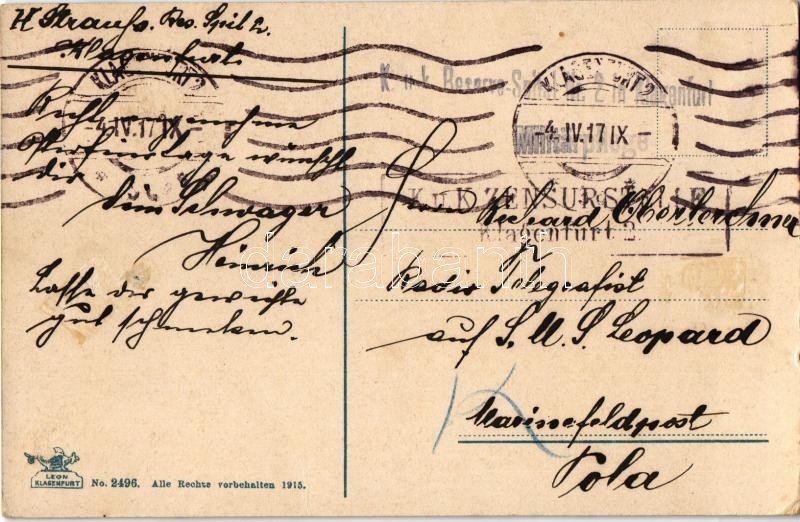 H Strauss. Res. Spit 2.
Klagenfurt.
Recht angenehme
wünscht
dir
dein Schwager
Heinrich
Lasse dir gewichte
gut schmeken.
KLAGENFURT 2
-4.IV.17 IX-
K. u. k. Reserve-Spital Nr. 2 in Klagenfurt
KLAGENFURT 2
-4.IV.17 IX-
Militärpflege
K. u. K. ZENSURSTELLE
Klagenfurt 2.
Herrn Richard Oberlerchner
Radio Telegrafist
auf S. M. S. Leopard
Marinefeldpost
Pola
darabanth
LEON
KLAGENFURT
No. 2496. Alle Rechte vorbehalten 1915.